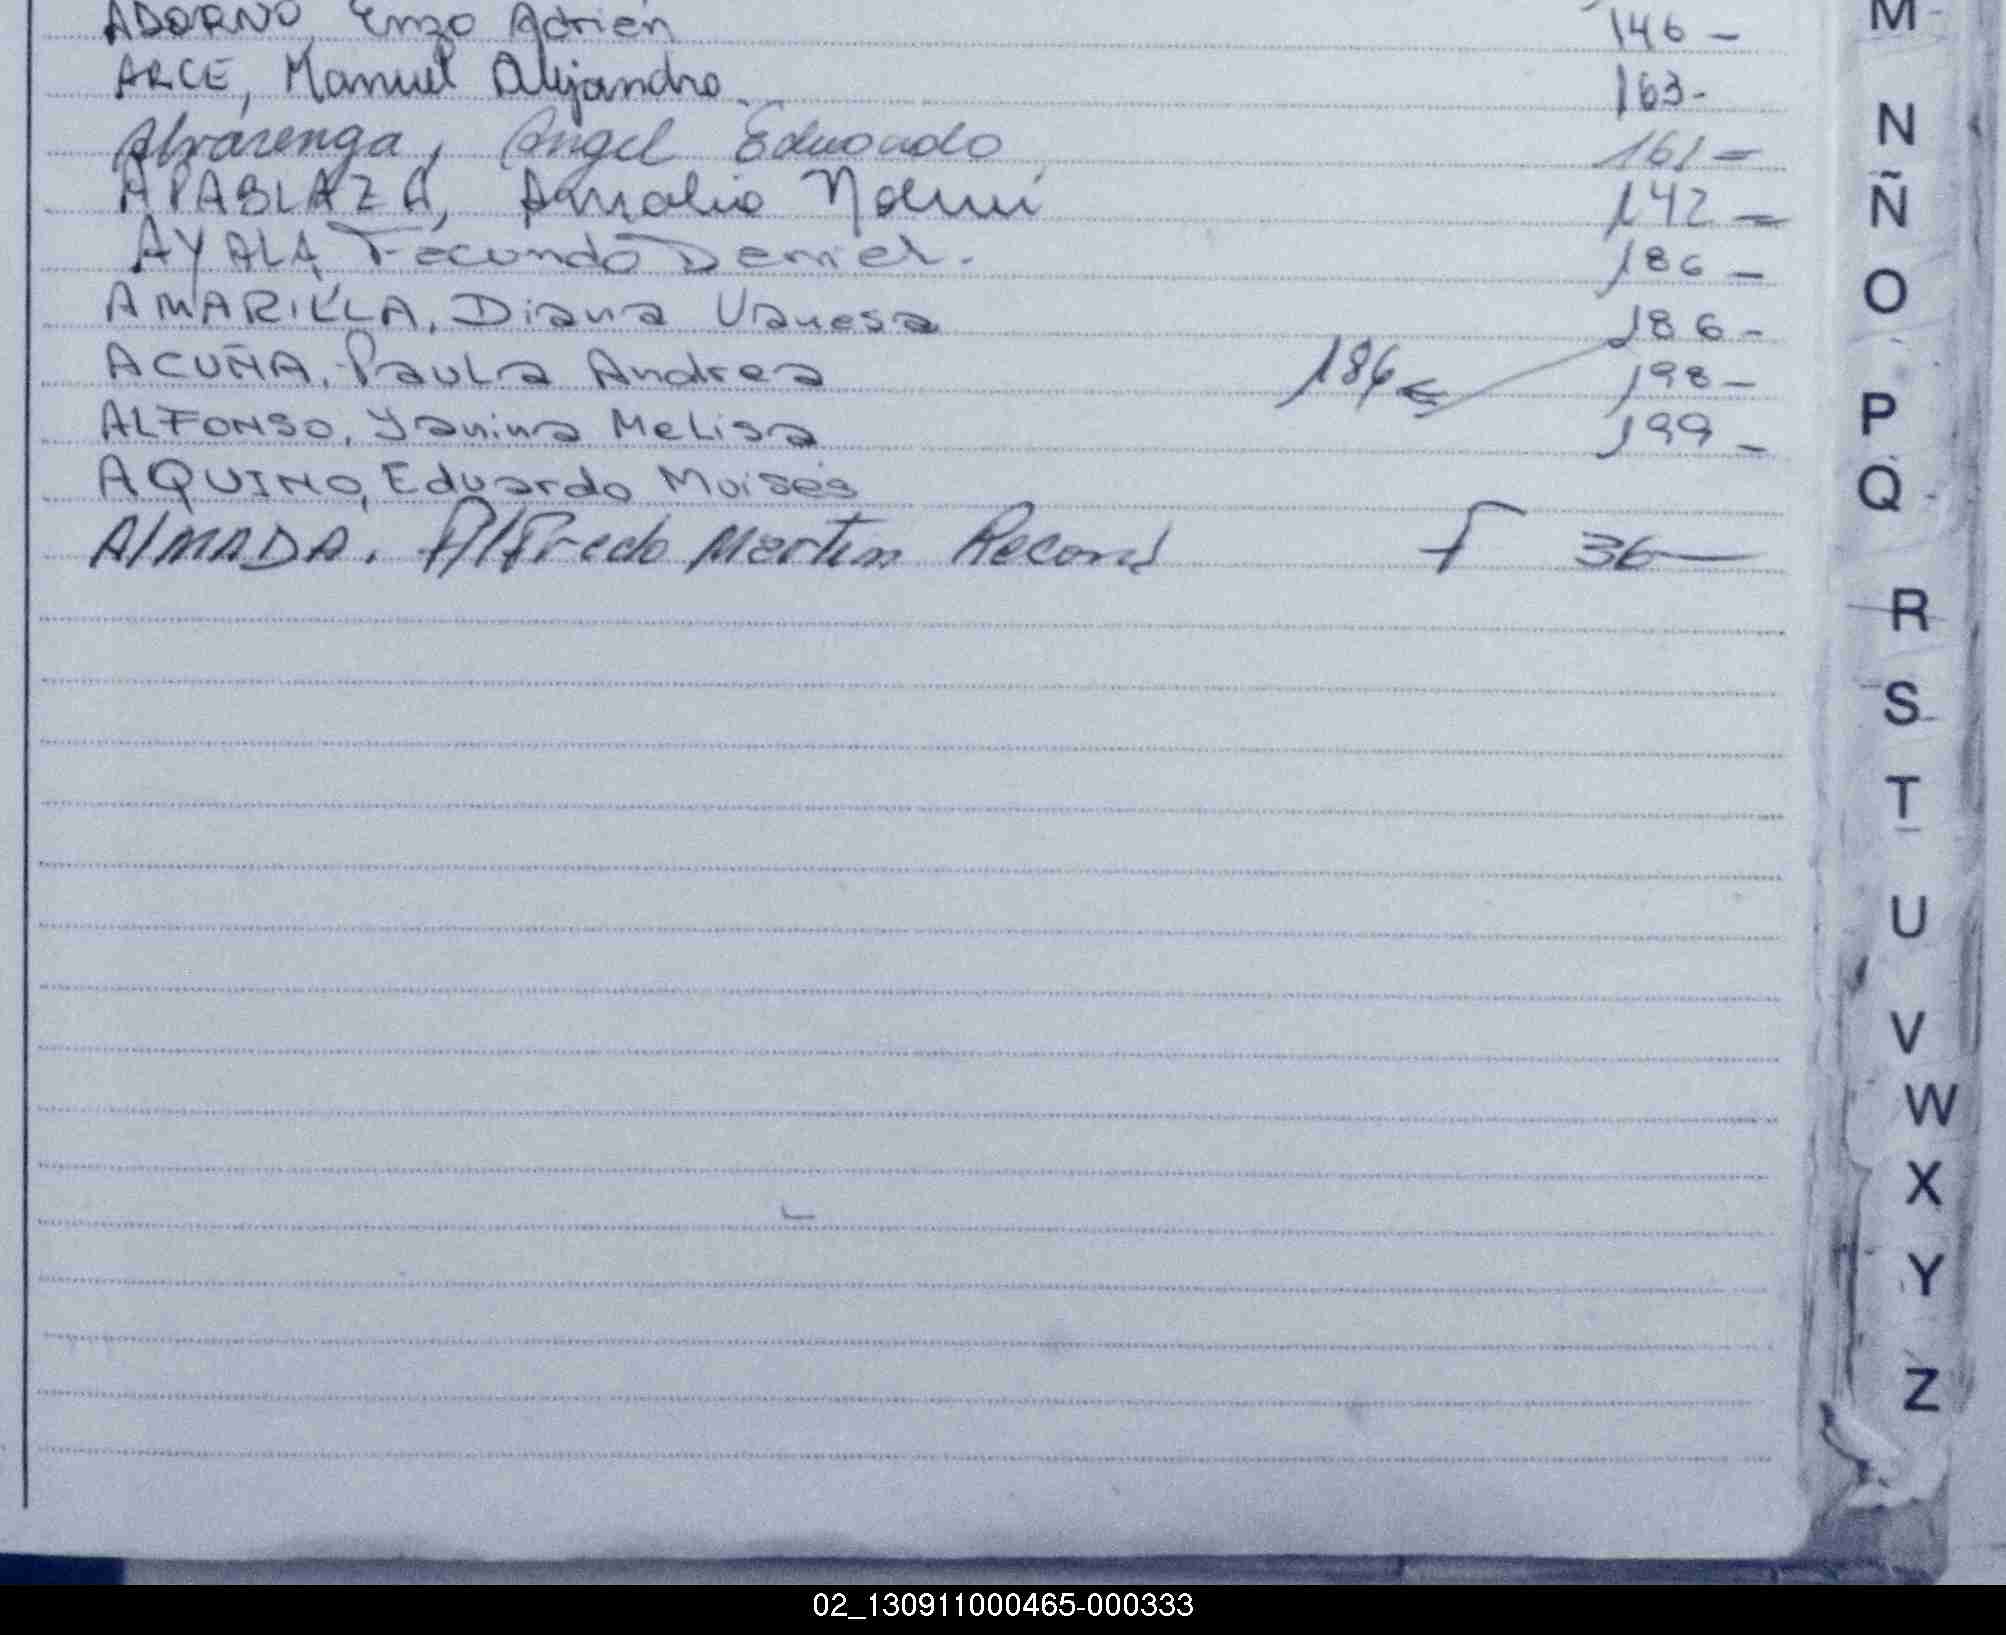 ADORNO, Enzo Adrien 146 -
ARCE, Manuel Alejandro 163-
Alvarenga, Angel Eduardo 161 =
APABLAZA, Amalia Noemi 142 =
AYALA, Facundo Daniel. 186 -
AMARILLA, Diana Vanesa 186 -
ACUÑA, Paula Andrea 186 198 -
ALFONSO, Yanina Melisa 199 -
AQUINO, Eduardo Moises
AlMADA. Alfredo Martin Record f 36 —
M
N
Ñ
O
P
Q
R
S
T
U
V
W
X
Y
Z
02_130911000465-000333